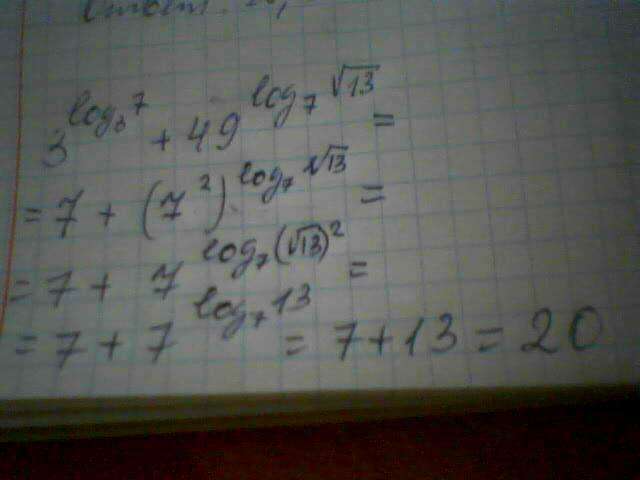 3^{log_3 7} + 49^{log_7 √13} =
= 7 + (7^2)^{log_7 √13} =
= 7 + 7^{log_7 (√13)^2} =
= 7 + 7^{log_7 13} = 7 + 13 = 20